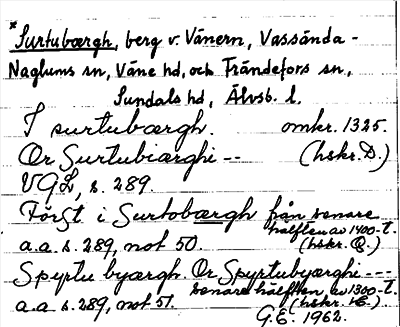 *Surtubærgh, berg v. Vänern, Vassända-
Naglums sn, Väne hd, och Frändefors sn,
Sundals hd, Älvsb. l.
I surtubærgh. omkr. 1325.
Or Surtubiærghi -- (hskr. D.)
VGL, s. 289
Först i Surtobærgh från senare
hälften av 1400-t.
a.a. s. 289, not 50. (hskr. Q.)
Spyrtu byærgh. Or Spyrtubyærghi ---
senare hälften av 1300-t.
a.a. s. 289, not 51. (hskr. E.)
G.E. 1962.